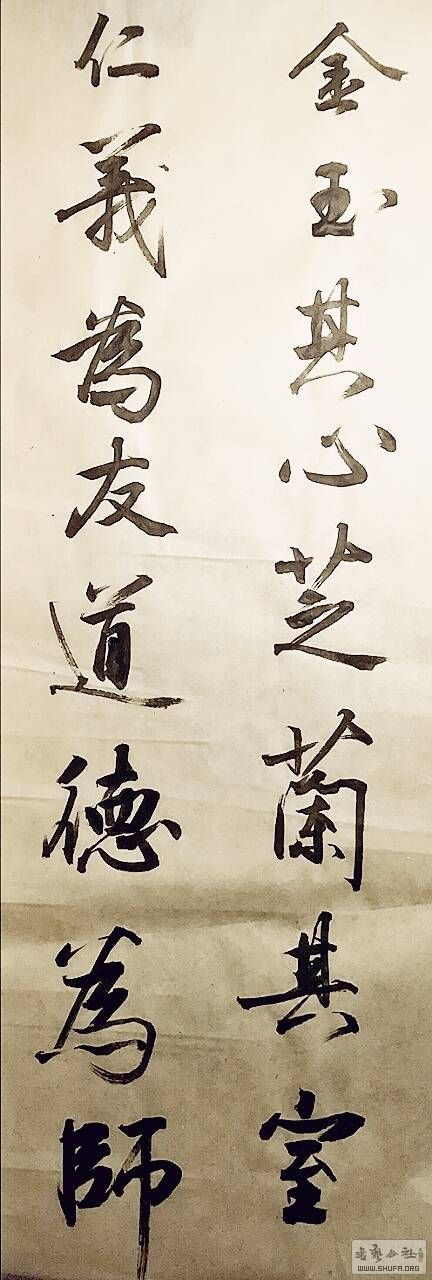 金玉其心芝蘭其室
仁義為友道德為師
WWW.SHUFA.ORG